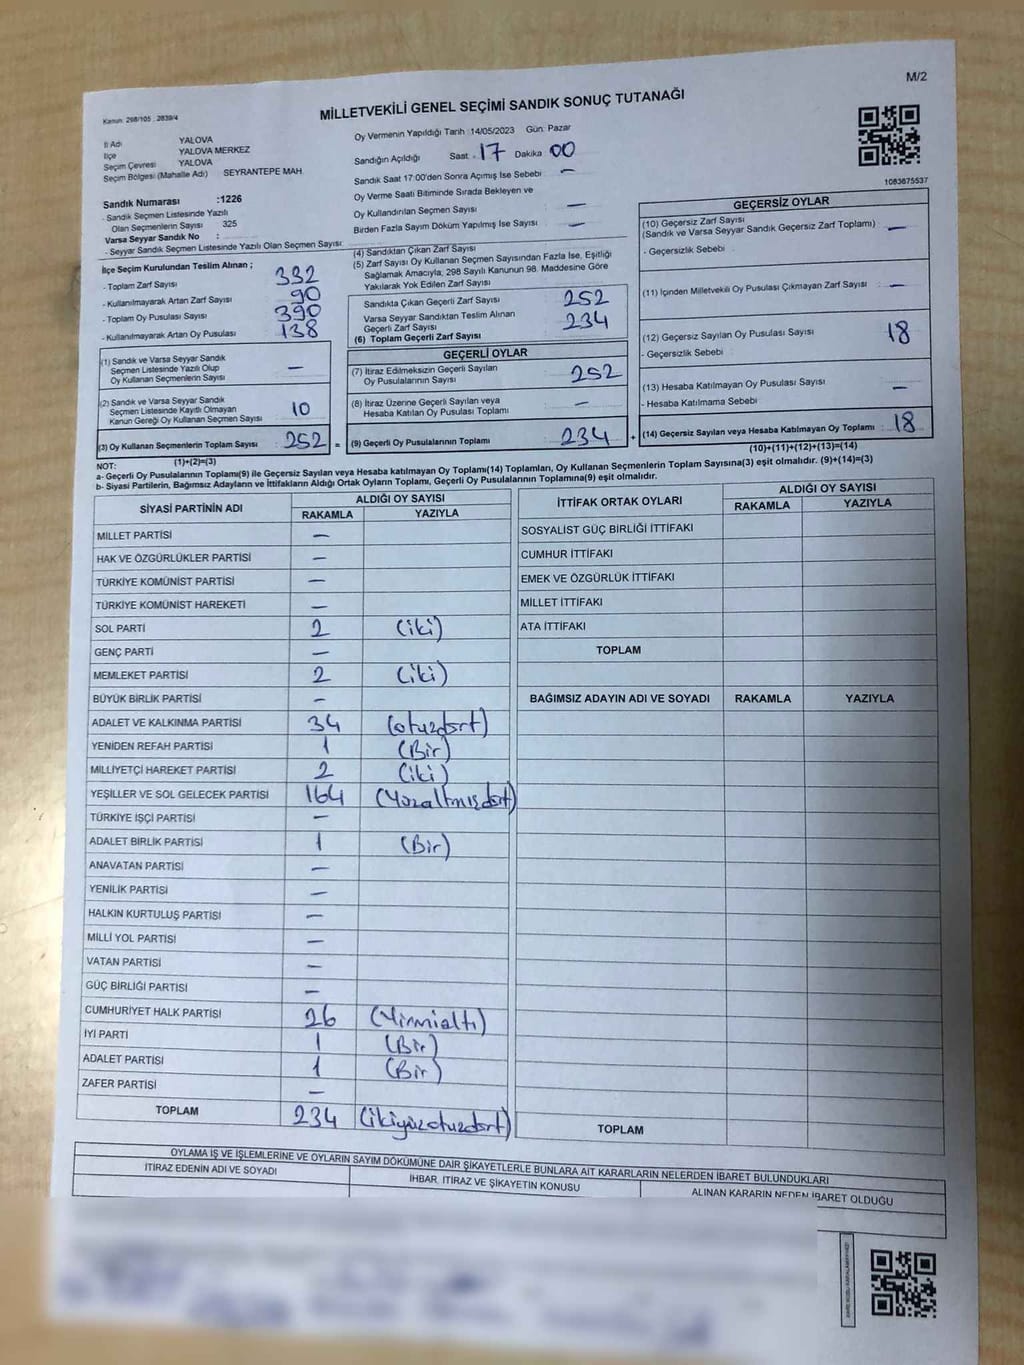 M/2
MİLLETVEKİLİ GENEL SEÇİMİ SANDIK SONUÇ TUTANAĞI
Kanun: 298/105 ; 2839/4
İl Adı YALOVA
İlçe YALOVA MERKEZ
Seçim Çevresi YALOVA
Seçim Bölgesi (Mahalle Adı) SEYRANTEPE MAH.
Sandık Numarası :1226
- Sandık Seçmen Listesinde Yazılı
Olan Seçmenlerin Sayısı : 325
Varsa Seyyar Sandık No :
- Seyyar Sandık Seçmen Listesinde Yazılı Olan Seçmen Sayısı:
Oy Vermenin Yapıldığı Tarih 14/05/2023 Gün: Pazar
Sandığın Açıldığı Saat : 17 Dakika 00
Sandık Saat 17:00'den Sonra Açımış İse Sebebi —
Oy Verme Saati Bitiminde Sırada Bekleyen ve
Oy Kullandırılan Seçmen Sayısı —
Birden Fazla Sayım Döküm Yapılmış İse Sayısı —
1083675537
İlçe Seçim Kurulundan Teslim Alınan ;
- Toplam Zarf Sayısı 332
- Kullanılmayarak Artan Zarf Sayısı 90
- Toplam Oy Pusulası Sayısı 390
- Kullanılmayarak Artan Oy Pusulası 138
(1) Sandık ve Varsa Seyyar Sandık
Seçmen Listesinde Yazılı Olup
Oy Kullanan Seçmenlerin Sayısı —
(2) Sandık ve Varsa Seyyar Sandık
Seçmen Listesinde Kayıtlı Olmayan
Kanun Gereği Oy Kullanan Seçmen Sayısı 10
(3) Oy Kullanan Seçmenlerin Toplam Sayısı 252 =
(1)+(2)=(3)
(4) Sandıktan Çıkan Zarf Sayısı
(5) Zarf Sayısı Oy Kullanan Seçmen Sayısından Fazla İse, Eşitliği
Sağlamak Amacıyla, 298 Sayılı Kanunun 98. Maddesine Göre
Yakılarak Yok Edilen Zarf Sayısı
Sandıkta Çıkan Geçerli Zarf Sayısı 252
Varsa Seyyar Sandıktan Teslim Alınan
Geçerli Zarf Sayısı 234
(6) Toplam Geçerli Zarf Sayısı
GEÇERLİ OYLAR
(7) İtiraz Edilmeksizin Geçerli Sayılan
Oy Pusulalarının Sayısı 252
(8) İtiraz Üzerine Geçerli Sayılan veya
Hesaba Katılan Oy Pusulası Toplamı —
(9) Geçerli Oy Pusulalarının Toplamı 234 +
GEÇERSİZ OYLAR
(10) Geçersiz Zarf Sayısı
(Sandık ve Varsa Seyyar Sandık Geçersiz Zarf Toplamı) —
- Geçersizlik Sebebi :
(11) İçinden Milletvekili Oy Pusulası Çıkmayan Zarf Sayısı —
(12) Geçersiz Sayılan Oy Pusulası Sayısı 18
- Geçersizlik Sebebi :
(13) Hesaba Katılmayan Oy Pusulası Sayısı —
- Hesaba Katılmama Sebebi
(14) Geçersiz Sayılan veya Hesaba Katılmayan Oy Toplamı : 18
(10)+(11)+(12)+(13)=(14)
NOT:
a- Geçerli Oy Pusulalarının Toplamı(9) ile Geçersiz Sayılan veya Hesaba katılmayan Oy Toplamı(14) Toplamları, Oy Kullanan Seçmenlerin Toplam Sayısına(3) eşit olmalıdır. (9)+(14)=(3)
b- Siyasi Partilerin, Bağımsız Adayların ve İttifakların Aldığı Ortak Oyların Toplamı, Geçerli Oy Pusulalarının Toplamına(9) eşit olmalıdır.
SİYASİ PARTİNİN ADI ALDIĞI OY SAYISI
RAKAMLA YAZIYLA
MİLLET PARTİSİ —
HAK VE ÖZGÜRLÜKLER PARTİSİ —
TÜRKİYE KOMÜNİST PARTİSİ —
TÜRKİYE KOMÜNİST HAREKETİ —
SOL PARTİ 2 (iki)
GENÇ PARTİ —
MEMLEKET PARTİSİ 2 (iki)
BÜYÜK BİRLİK PARTİSİ —
ADALET VE KALKINMA PARTİSİ 34 (otuzdört)
YENİDEN REFAH PARTİSİ 1 (Bir)
MİLLİYETÇİ HAREKET PARTİSİ 2 (iki)
YEŞİLLER VE SOL GELECEK PARTİSİ 164 (Yüzaltmışdört)
TÜRKİYE İŞÇİ PARTİSİ —
ADALET BİRLİK PARTİSİ 1 (Bir)
ANAVATAN PARTİSİ —
YENİLİK PARTİSİ —
HALKIN KURTULUŞ PARTİSİ —
MİLLİ YOL PARTİSİ —
VATAN PARTİSİ —
GÜÇ BİRLİĞİ PARTİSİ —
CUMHURİYET HALK PARTİSİ 26 (Yirmialtı)
İYİ PARTİ 1 (Bir)
ADALET PARTİSİ 1 (Bir)
ZAFER PARTİSİ —
TOPLAM 234 (ikiyüzotuzdört)
İTTİFAK ORTAK OYLARI ALDIĞI OY SAYISI
RAKAMLA YAZIYLA
SOSYALİST GÜÇ BİRLİĞİ İTTİFAKI
CUMHUR İTTİFAKI
EMEK VE ÖZGÜRLÜK İTTİFAKI
MİLLET İTTİFAKI
ATA İTTİFAKI
TOPLAM
BAĞIMSIZ ADAYIN ADI VE SOYADI RAKAMLA YAZIYLA
TOPLAM
OYLAMA İŞ VE İŞLEMLERİNE VE OYLARIN SAYIM DÖKÜMÜNE DAİR ŞİKAYETLERLE BUNLARA AİT KARARLARIN NELERDEN İBARET BULUNDUKLARI
İTİRAZ EDENİN ADI VE SOYADI İHBAR, İTİRAZ VE ŞİKAYETİN KONUSU ALINAN KARARIN NEDEN İBARET OLDUĞU